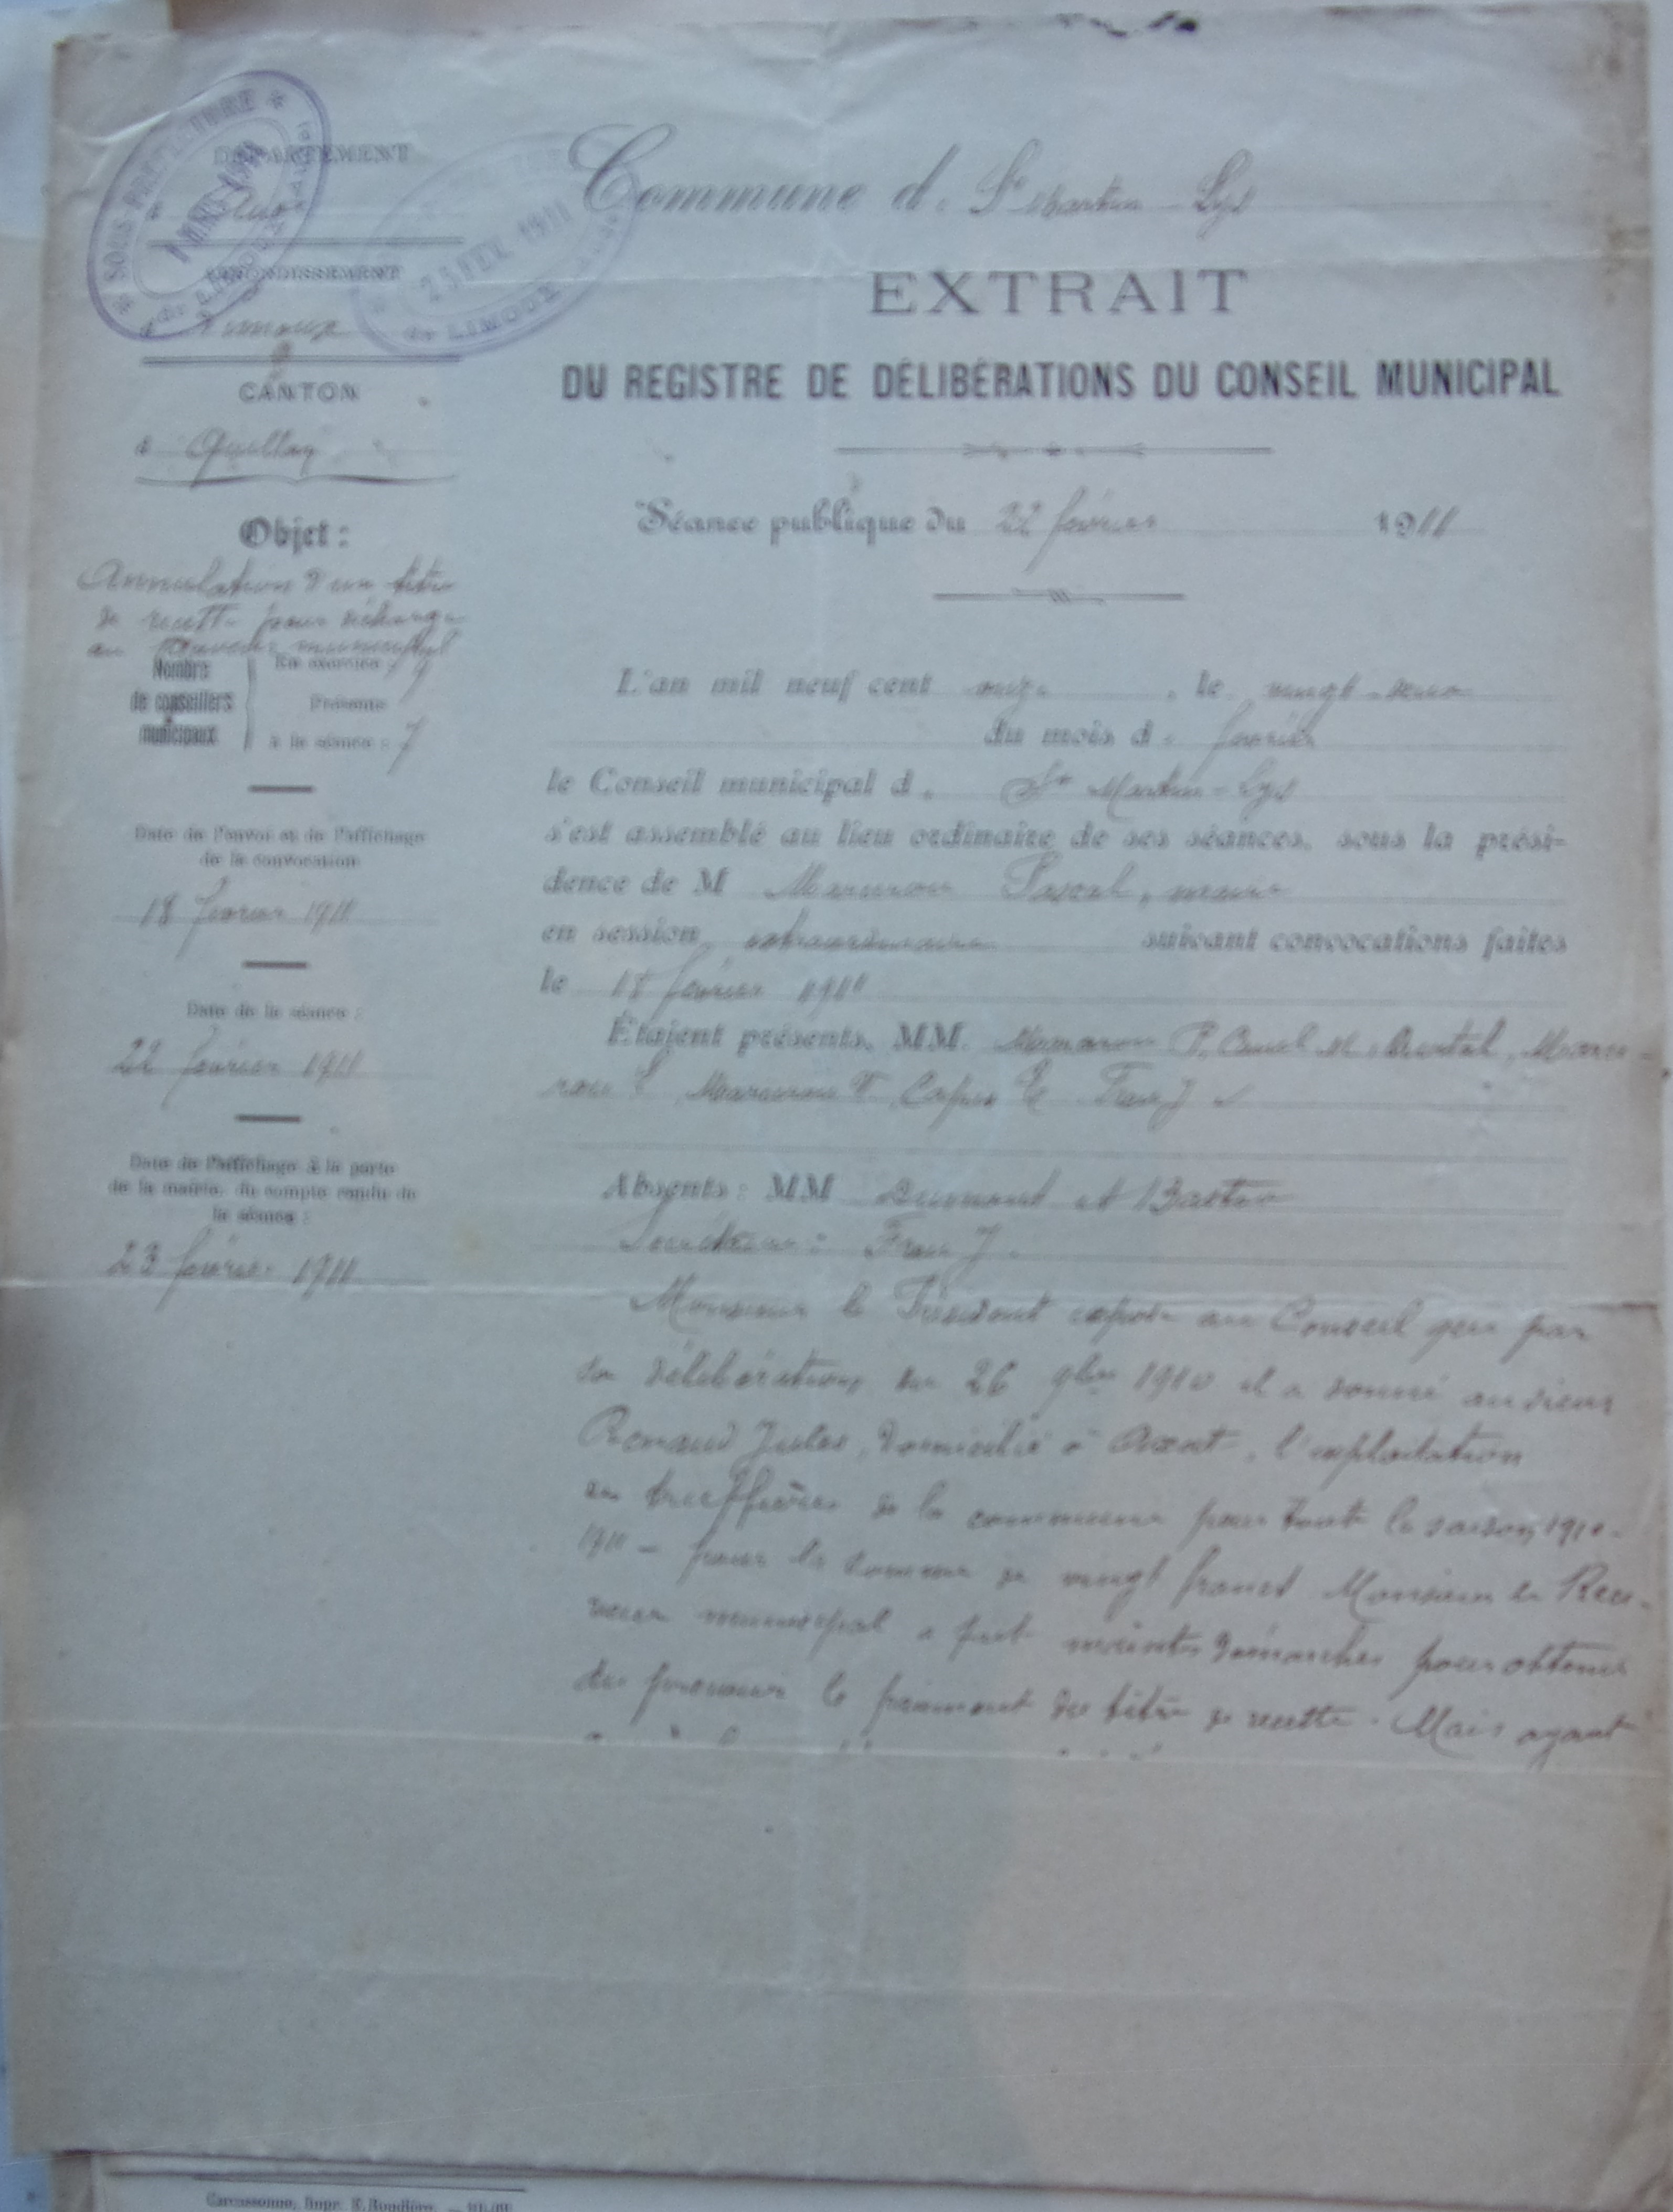 SOUS-PRÉFECTURE
de LIMOUX
25 FEV. 1911
de LIMOUX
DÉPARTEMENT
d
ARRONDISSEMENT
d Limoux
CANTON
d Quillan
Objet :
Annulation d'un titre
de recette pour décharge
au Receveur municipal
Nombre
de conseillers
municipaux
En exercice 9
Présents
à la séance : 7
Date de l'envoi et de l'affichage
de la convocation
18 février 1911
Date de la séance :
22 février 1911
Date de l'affichage à la porte
de la mairie, du compte rendu de
la séance :
23 février 1911
Commune d. St Martin-Lys
EXTRAIT
DU REGISTRE DE DÉLIBÉRATIONS DU CONSEIL MUNICIPAL
Séance publique du 22 février 1911
L'an mil neuf cent onze , le vingt-deux
du mois d. février
le Conseil municipal d. St Martin-Lys
s'est assemblé au lieu ordinaire de ses séances, sous la prési-
dence de M Pascal, maire
en session extraordinaire suivant convocations faites
le 18 février 1911
Étaient présents, MM. P.
J
Absents : MM et
Secrétaire : J.
Monsieur le Président expose au Conseil que par
sa délibération du 26 9bre 1910 il a donné au sieur
Renaud Jules, domicilié à Axat, l'exploitation
des truffières de la commune pour toute la saison 1910-
1911 - pour la somme de vingt francs Monsieur le Rece-
veur municipal a fait maintes démarches pour obtenir
du preneur le paiement du titre de recette. Mais ayant
Carcassonne, Impr. Roudière.